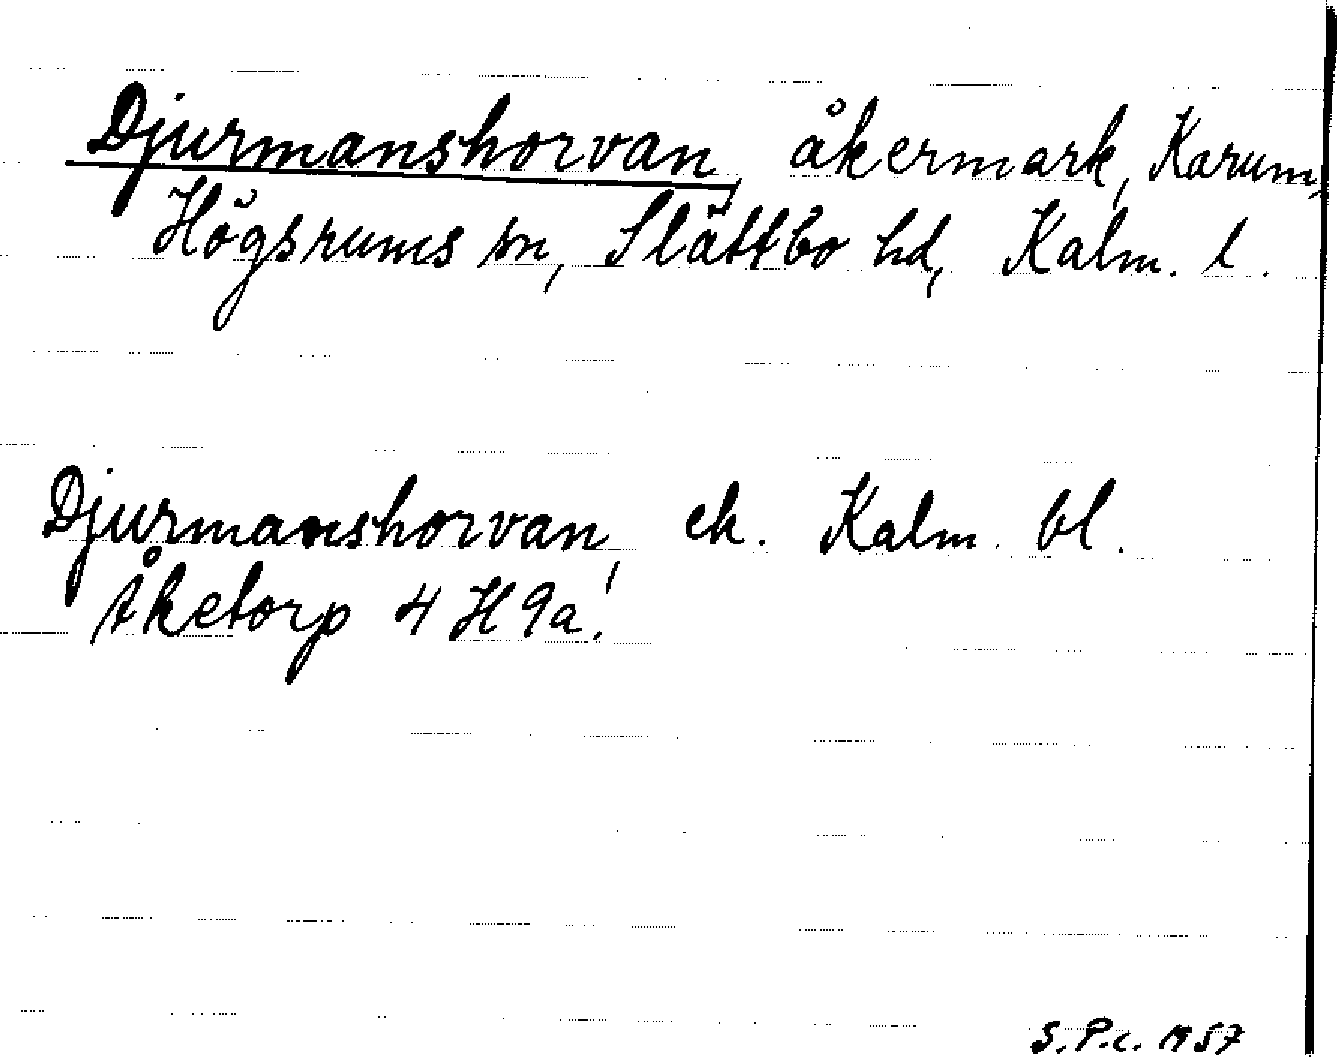 Djurmanshorvan, åkermark, Karum,
Högsrums sn, Slättbo hd, Kalm. l.
Djurmanshorvan, ek. Kalm. bl.
Åketorp 4 H 9a.
S. P.c. 1957